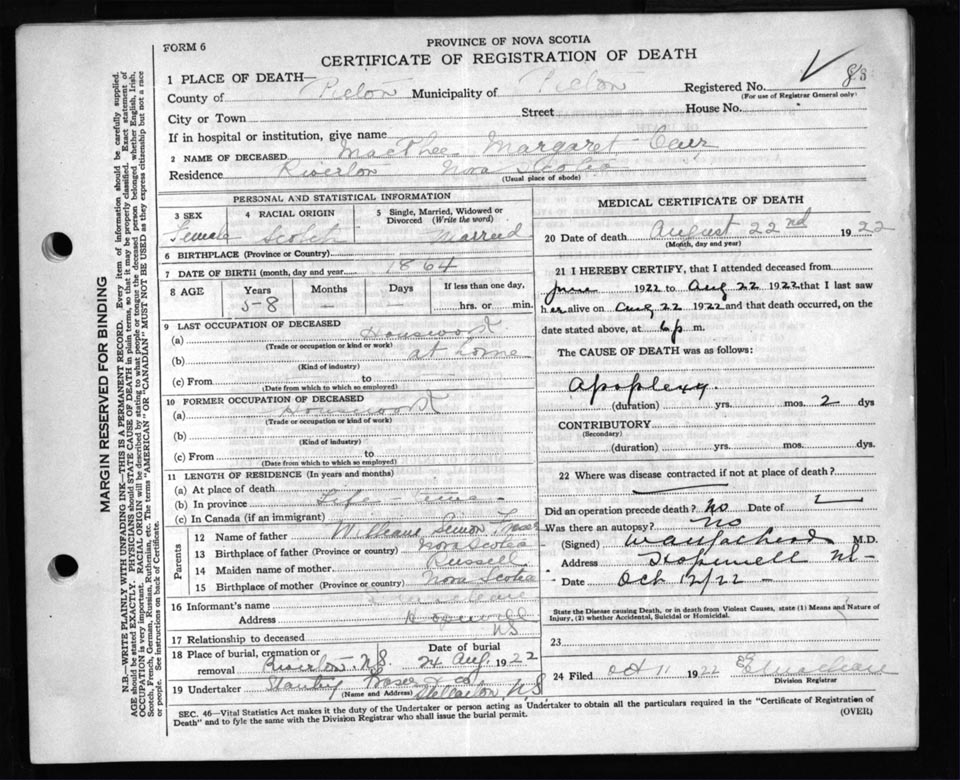 FORM 6
PROVINCE OF NOVA SCOTIA
CERTIFICATE OF REGISTRATION OF DEATH
1 PLACE OF DEATH—
Registered No. 83
(For use of Registrar General only)
County of Pictou Municipality of Pictou
City or Town Street House No.
If in hospital or institution, give name
2 NAME OF DECEASED MacPhee Margaret
Residence Riverton Nova Scotia
(Usual place of abode)
PERSONAL AND STATISTICAL INFORMATION
3 SEX 4 RACIAL ORIGIN 5 Single, Married, Widowed or Divorced (Write the word)
Female Scotch Married
6 BIRTHPLACE (Province or Country)
7 DATE OF BIRTH (month, day and year) 1864
8 AGE Years Months Days If less than one day,
58 — — hrs. or min.
9 LAST OCCUPATION OF DECEASED
(a) Housework
(Trade or occupation or kind or work)
(b) at home
(Kind of industry)
(c) From to
(Date from which to which so employed)
10 FORMER OCCUPATION OF DECEASED
(a) Housework
(Trade or occupation or kind of work)
(b)
(Kind of industry)
(c) From to
(Date from which to which so employed)
11 LENGTH OF RESIDENCE (In years and months)
(a) At place of death
(b) In province Life-time
(c) In Canada (if an immigrant)
Parents
12 Name of father William Simon Fraser
13 Birthplace of father (Province or country) Nova Scotia
14 Maiden name of mother Russel
15 Birthplace of mother (Province or country) Nova Scotia
16 Informant's name
Address Hopewell
NS
17 Relationship to deceased
18 Place of burial, cremation or removal Riverton N.S. Date of burial 24 Aug. 1922
19 Undertaker Fraser & Co Stellarton NS
(Name and Address)
MEDICAL CERTIFICATE OF DEATH
20 Date of death August 22nd 1922
(Month, day and year)
21 I HEREBY CERTIFY, that I attended deceased from
June 1922 to Aug 22 1922 that I last saw
her alive on Aug 22 1922 and that death occurred, on the
date stated above, at 6 p m.
The CAUSE OF DEATH was as follows:
Apoplexy.
(duration) yrs. mos. 2 dys
CONTRIBUTORY
(Secondary)
(duration) yrs. mos. dys.
22 Where was disease contracted if not at place of death?
Did an operation precede death? No Date of
Was there an autopsy? No
(Signed) M.D.
Address Hopewell NS
Date Oct 12/22
State the Disease causing Death, or in death from Violent Causes, state (1) Means and Nature of
Injury, (2) whether Accidental, Suicidal or Homicidal.
23
24 Filed Oct 11 1922 Maclean
Division Registrar
SEC. 46—Vital Statistics Act makes it the duty of the Undertaker or person acting as Undertaker to obtain all the particulars required in the "Certificate of Registration of
Death" and to fyle the same with the Division Registrar who shall issue the burial permit. (OVER)
MARGIN RESERVED FOR BINDING
N.B.—WRITE PLAINLY WITH UNFADING INK—THIS IS A PERMANENT RECORD. Every item of information should be carefully supplied.
AGE should be stated EXACTLY. PHYSICIANS should STATE CAUSE OF DEATH in plain terms, so that it may be properly classified. Exact statement of
OCCUPATION is very important. RACIAL ORIGIN will be described by stating to what people or tongue the deceased person belonged whether English, Irish,
Scotch, French, German, Russian, Ruthenian, etc. The terms "AMERICAN" OR "CANADIAN" MUST NOT BE USED as they express citizenship but not a race
or people. See instructions on back of Certificate.